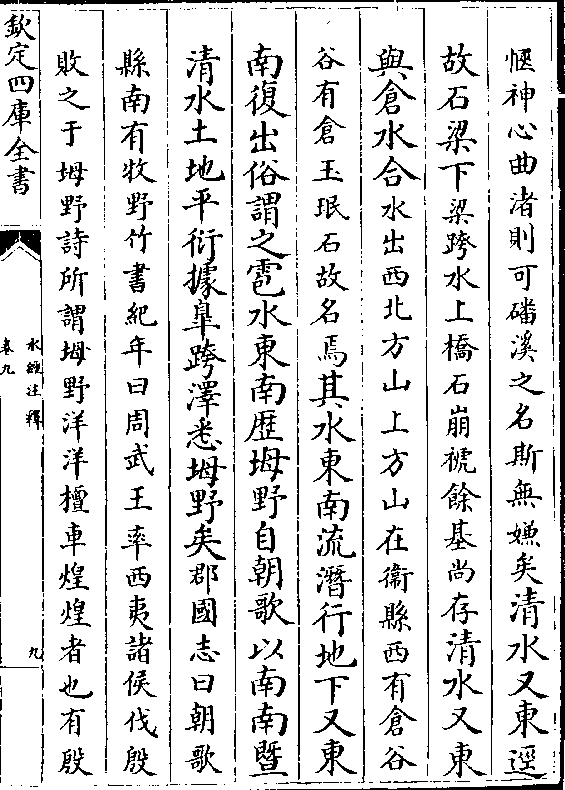 愜神心曲渚則可磻溪之名斯無嫌矣清水又東逕
故石梁下梁跨水上橋石崩褫餘基尚存清水又東
與倉水合水出西北方山上方山在衞縣西有倉谷
谷有倉玉珉石故名焉其水東南流潛行地下又東
南復出俗謂之雹水東南歷坶野自朝歌以南南暨
清水土地平衍據臯跨澤悉坶野矣郡國志曰朝歌
縣南有牧野竹書紀年曰周武王率西夷諸侯伐殷
敗之于坶野詩所謂坶野洋洋檀車煌煌者也有殷
欽定四庫全書
水經注釋
卷九
九